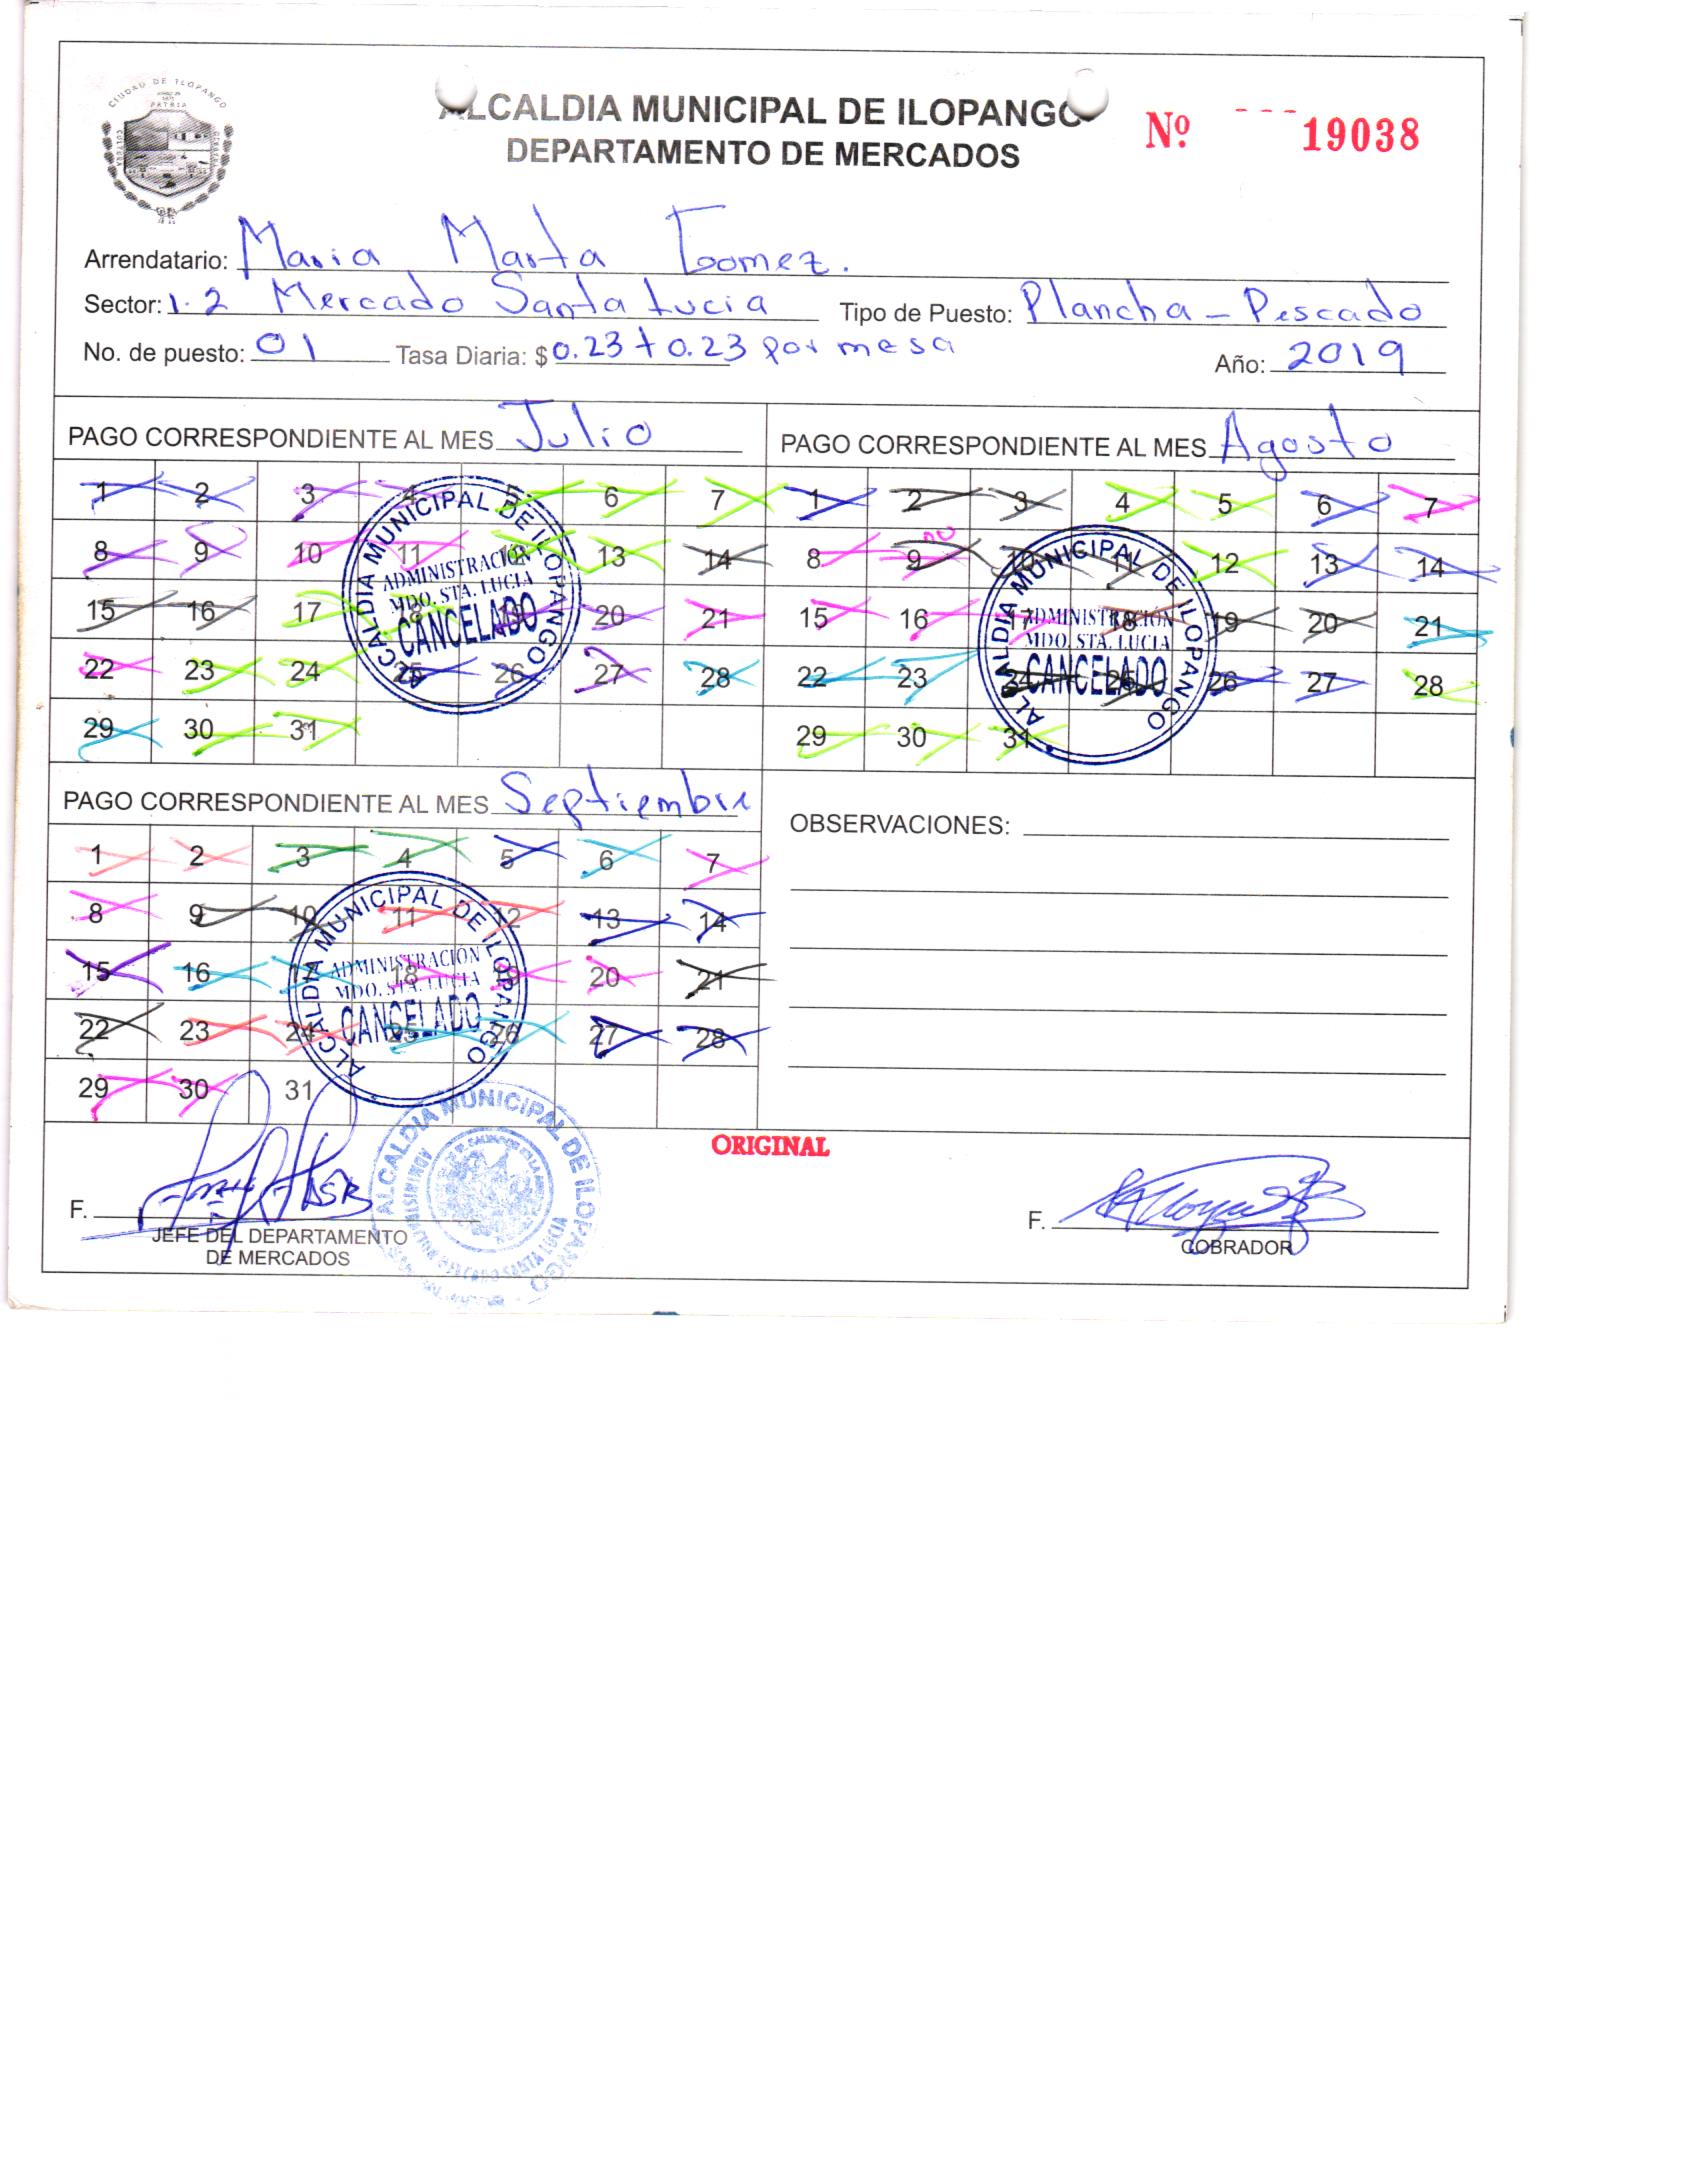 CIUDAD DE ILOPANGO
PATRIA
ALCALDIA MUNICIPAL DE ILOPANGO
DEPARTAMENTO DE MERCADOS
Nº 19038
Arrendatario: Maria Marta Gomez.
Sector: 1.2 Mercado Santa Lucia Tipo de Puesto: Plancha - Pescado
No. de puesto: 01 Tasa Diaria: $ 0.23 + 0.23 por mesa Año: 2019
PAGO CORRESPONDIENTE AL MES Julio
1 2 3 4 5 6 7
8 9 10 11 12 13 14
15 16 17 18 19 20 21
22 23 24 25 26 27 28
29 30 31
ALCALDIA MUNICIPAL DE ILOPANGO
ADMINISTRACIÓN
MDO. STA. LUCIA
CANCELADO
PAGO CORRESPONDIENTE AL MES Agosto
1 2 3 4 5 6 7
8 9 10 11 12 13 14
15 16 17 18 19 20 21
22 23 24 25 26 27 28
29 30 31
ALCALDIA MUNICIPAL DE ILOPANGO
ADMINISTRACIÓN
MDO. STA. LUCIA
CANCELADO
PAGO CORRESPONDIENTE AL MES Septiembre
1 2 3 4 5 6 7
8 9 10 11 12 13 14
15 16 17 18 19 20 21
22 23 24 25 26 27 28
29 30 31
ALCALDIA MUNICIPAL DE ILOPANGO
ADMINISTRACIÓN
MDO. STA. LUCIA
CANCELADO
OBSERVACIONES:
ORIGINAL
F.
JEFE DEL DEPARTAMENTO
DE MERCADOS
ALCALDIA MUNICIPAL DE ILOPANGO
F.
COBRADOR